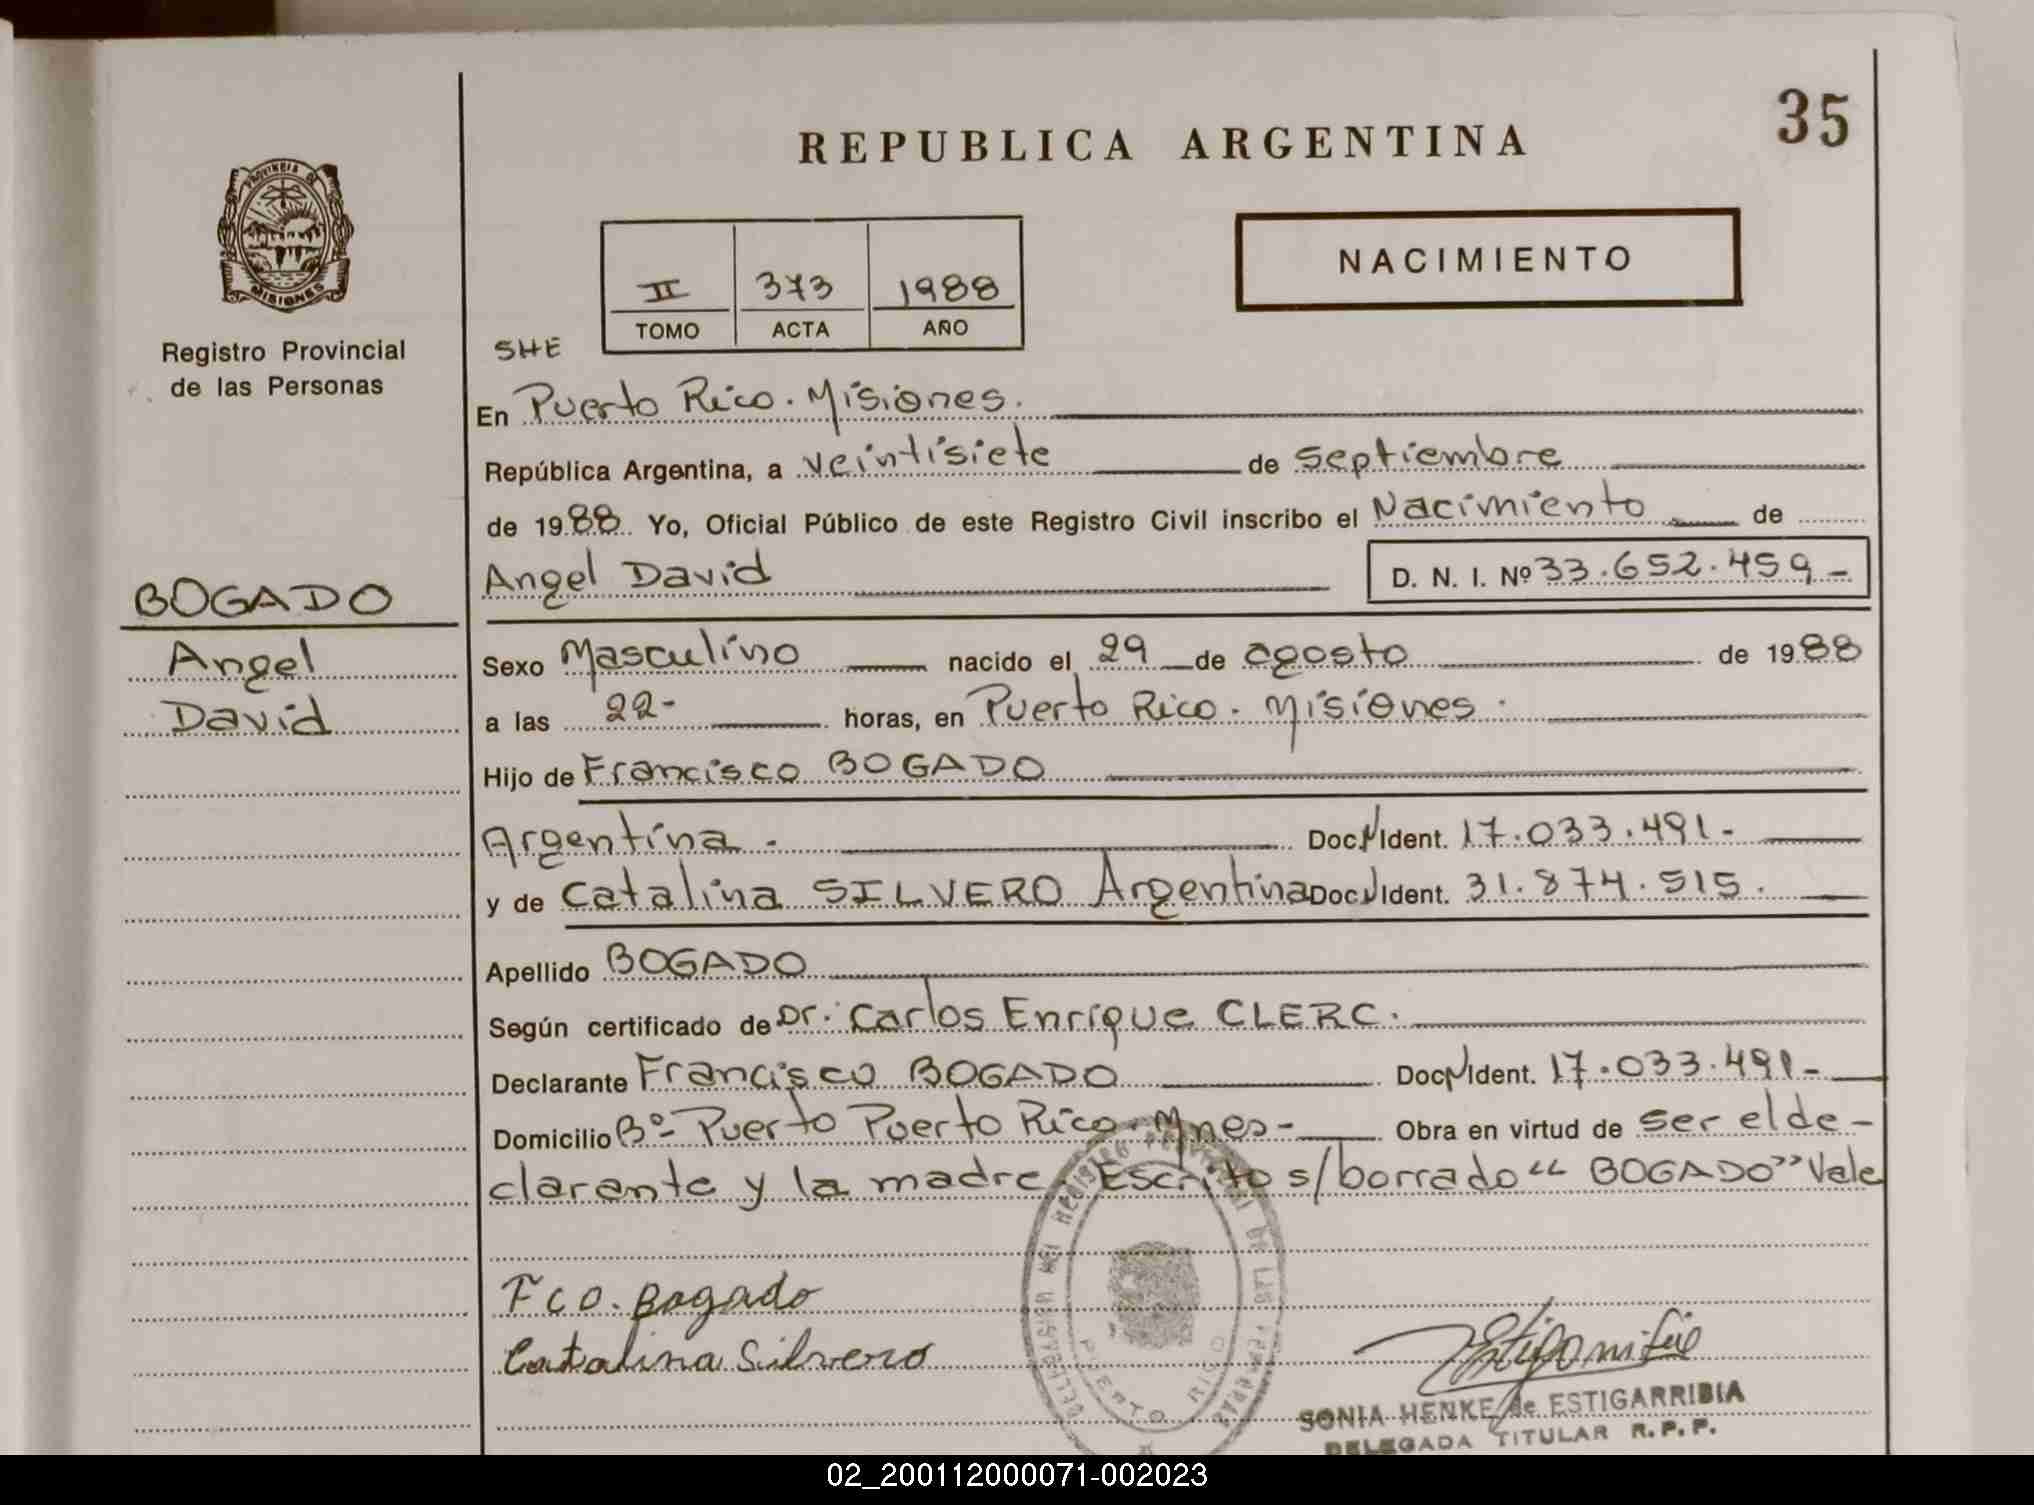 35
REPUBLICA ARGENTINA
PROVINCIA DE
MISIONES
Registro Provincial
de las Personas
NACIMIENTO
II 373 1988
TOMO ACTA AÑO
SHE
En Puerto Rico. Misiones.
República Argentina, a veintisiete de septiembre
de 1988 Yo, Oficial Público de este Registro Civil inscribo el Nacimiento de
Angel David D. N. I. Nº 33.652.459-
BOGADO
Angel
David
Sexo Masculino nacido el 29 de agosto de 1988
a las 22- horas, en Puerto Rico. Misiones.
Hijo de Francisco BOGADO
Argentina. Doc. Ident. 17.033.491-
y de Catalina SILVERO Argentina Doc. Ident. 31.874.515.
Apellido BOGADO
Según certificado de Dr. Carlos Enrique CLERC.
Declarante Francisco BOGADO Doc. Ident. 17.033.491-
Domicilio Bº- Puerto Puerto Rico. Mnes- Obra en virtud de ser el de-
clarante y la madre Escrito s/borrado "BOGADO" Vale
Fco. Bogado
Catalina Silvero
REGISTRO PROVINCIAL DE LAS PERSONAS
PUERTO RICO
SONIA HENKE de ESTIGARRIBIA
DELEGADA TITULAR R.P.P.
02_200112000071-002023